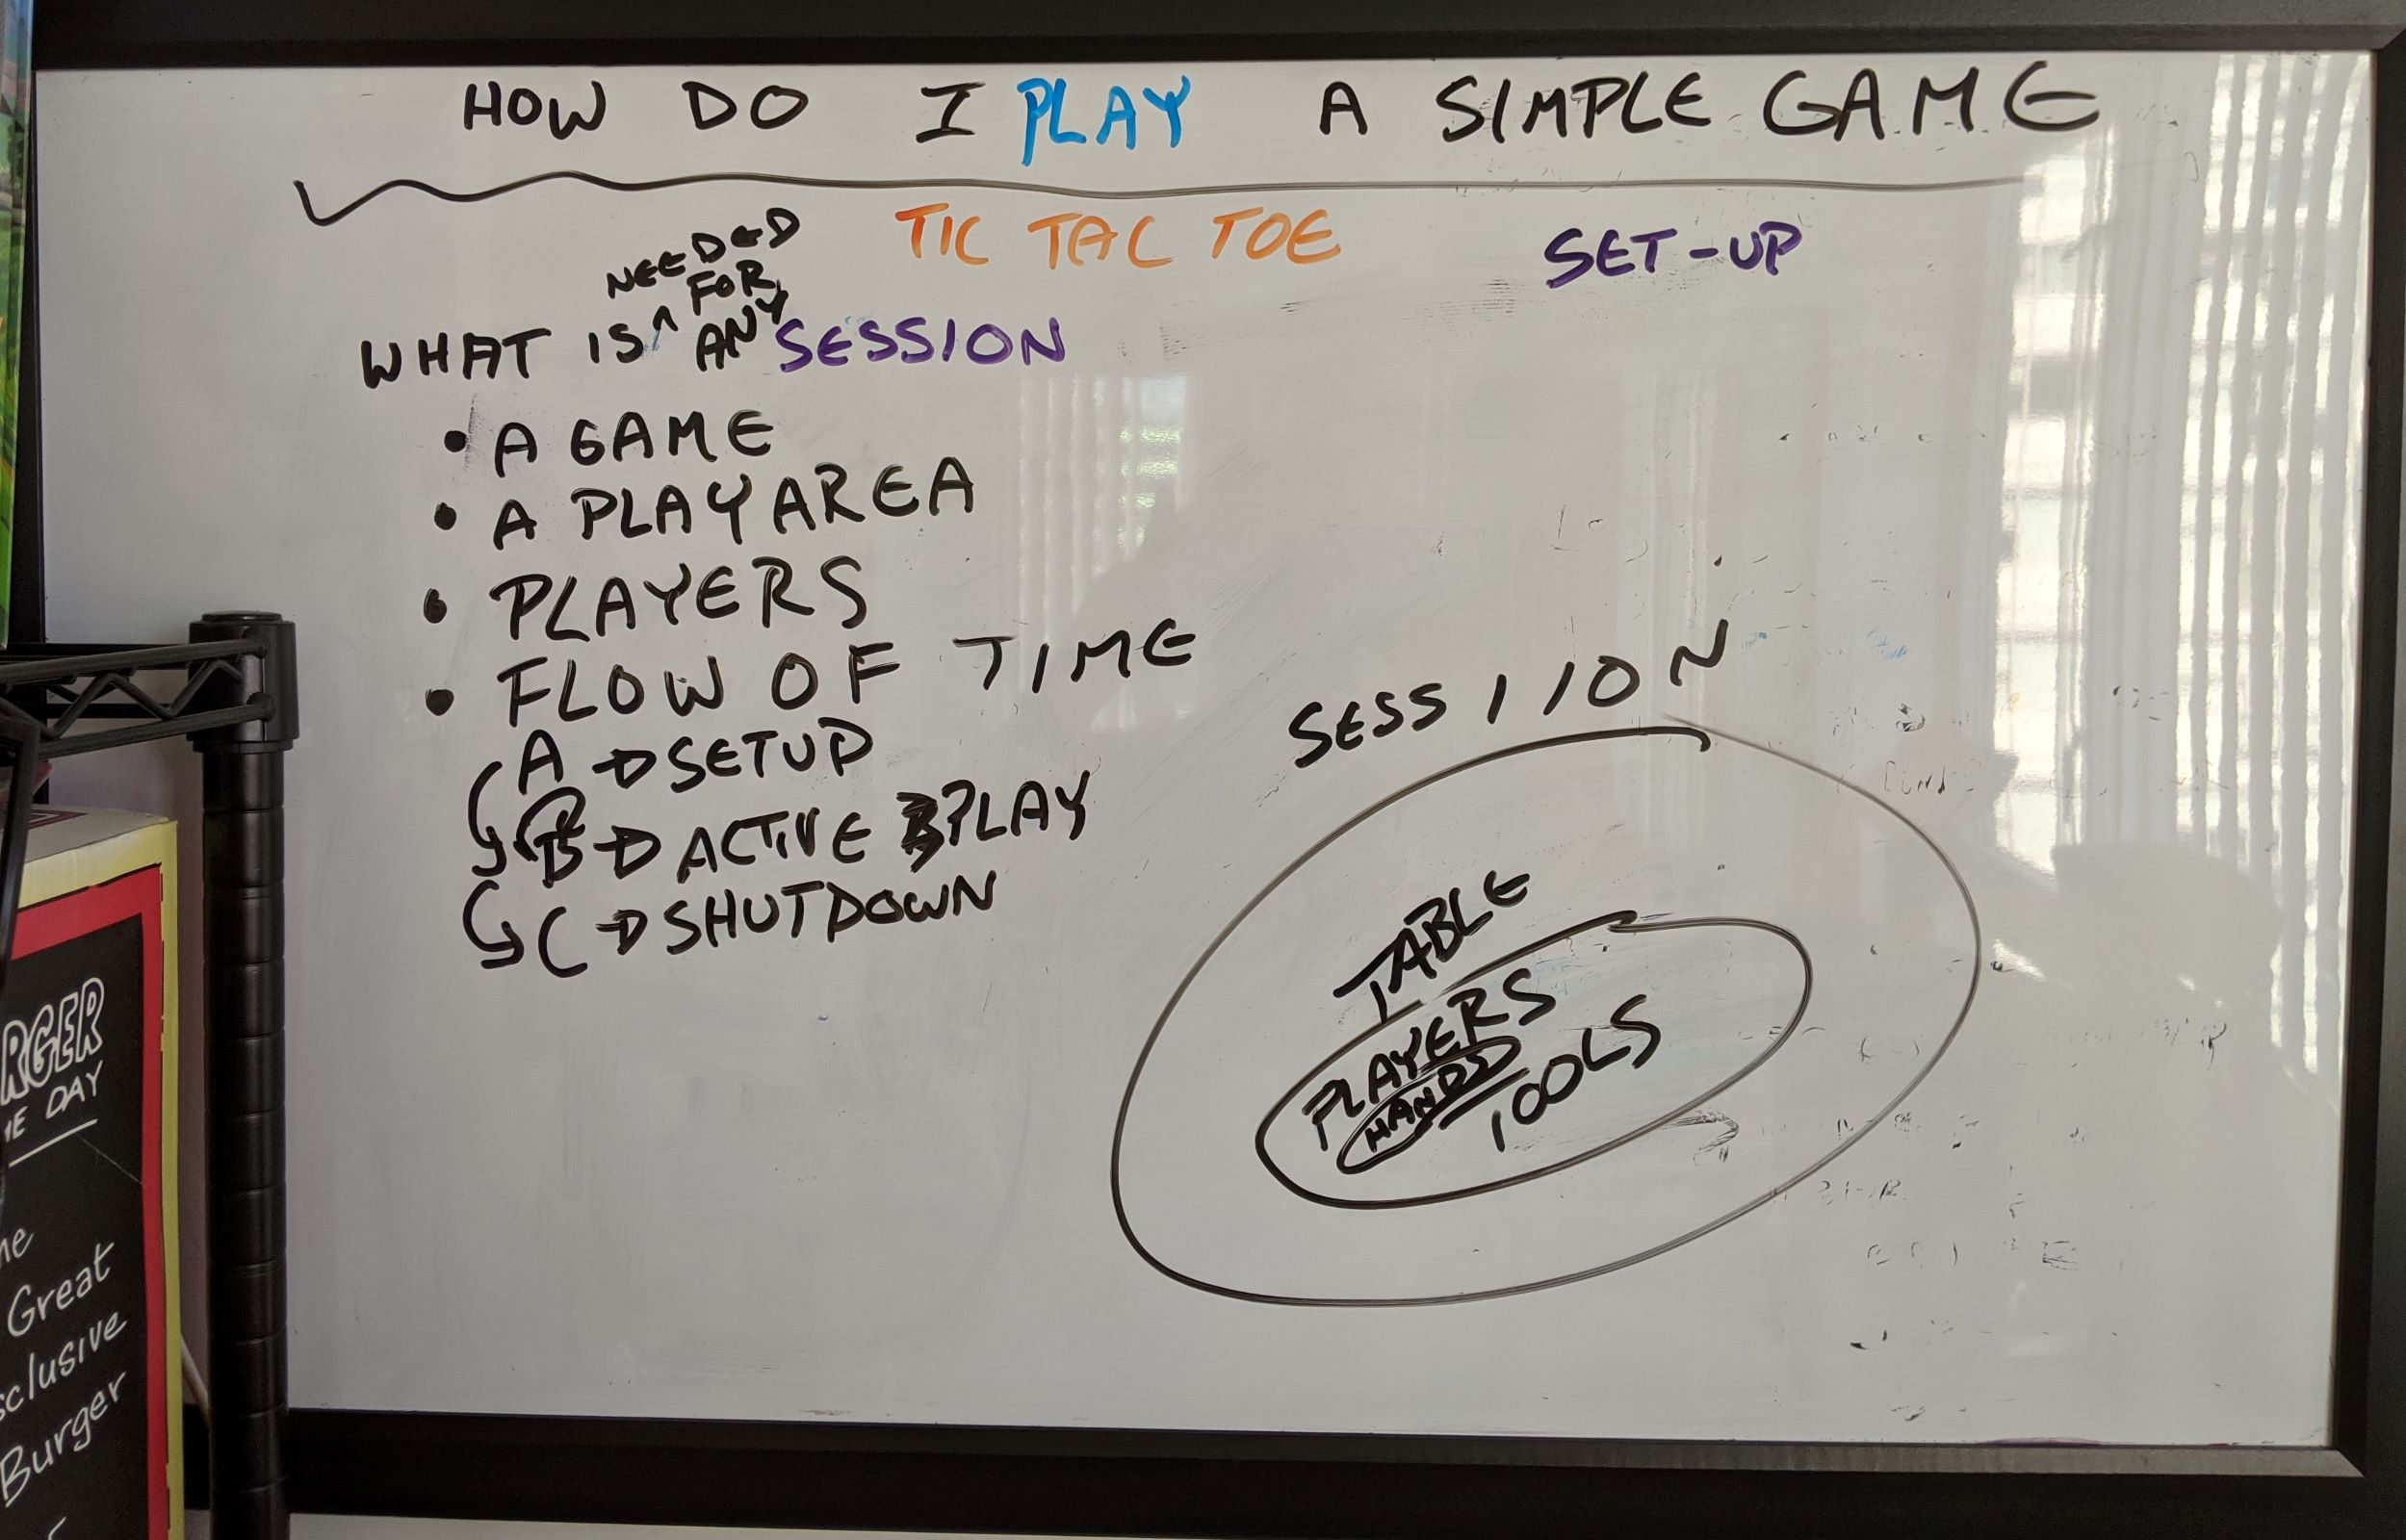 HOW DO I PLAY A SIMPLE GAME
TIC TAC TOE
SET-UP
NEEDED
FOR
WHAT IS ^ ANY SESSION
• A GAME
• A PLAY AREA
• PLAYERS
• FLOW OF TIME
A → SETUP
B → ACTIVE PLAY
C → SHUTDOWN
SESSION
TABLE
PLAYERS
HANDS
TOOLS
RGER
DAY
Great
Burger